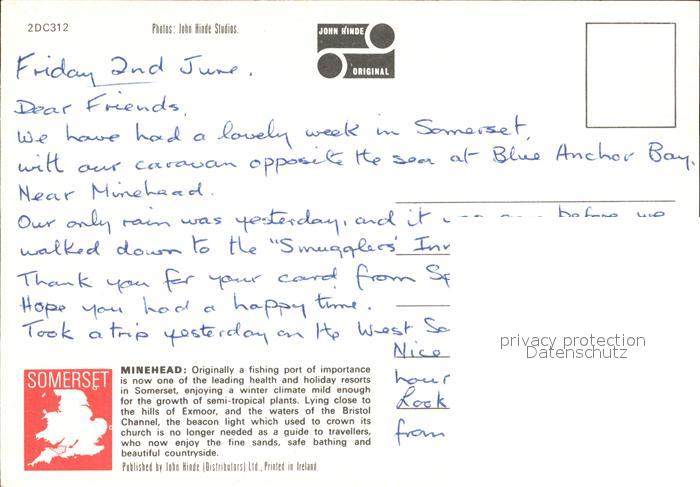 2DC312
Photos: John Hinde Studios.
JOHN HINDE
ORIGINAL
Friday 2nd June.
Dear Friends,
We have had a lovely week in Somerset,
with our caravan opposite the sea at Blue Anchor Bay.
Near Minehead.
Our only rain was yesterday, and it before we
walked down to the "Smugglers' Inn
Thank you for your card from Sp
Hope you had a happy time.
Took a trip yesterday on the West So
Nice
hour
Look
from
privacy protection
Datenschutz
SOMERSET
MINEHEAD: Originally a fishing port of importance
is now one of the leading health and holiday resorts
in Somerset, enjoying a winter climate mild enough
for the growth of semi-tropical plants. Lying close to
the hills of Exmoor, and the waters of the Bristol
Channel, the beacon light which used to crown its
church is no longer needed as a guide to travellers,
who now enjoy the fine sands, safe bathing and
beautiful countryside.
Published by John Hinde (Distributors) Ltd., Printed in Ireland.